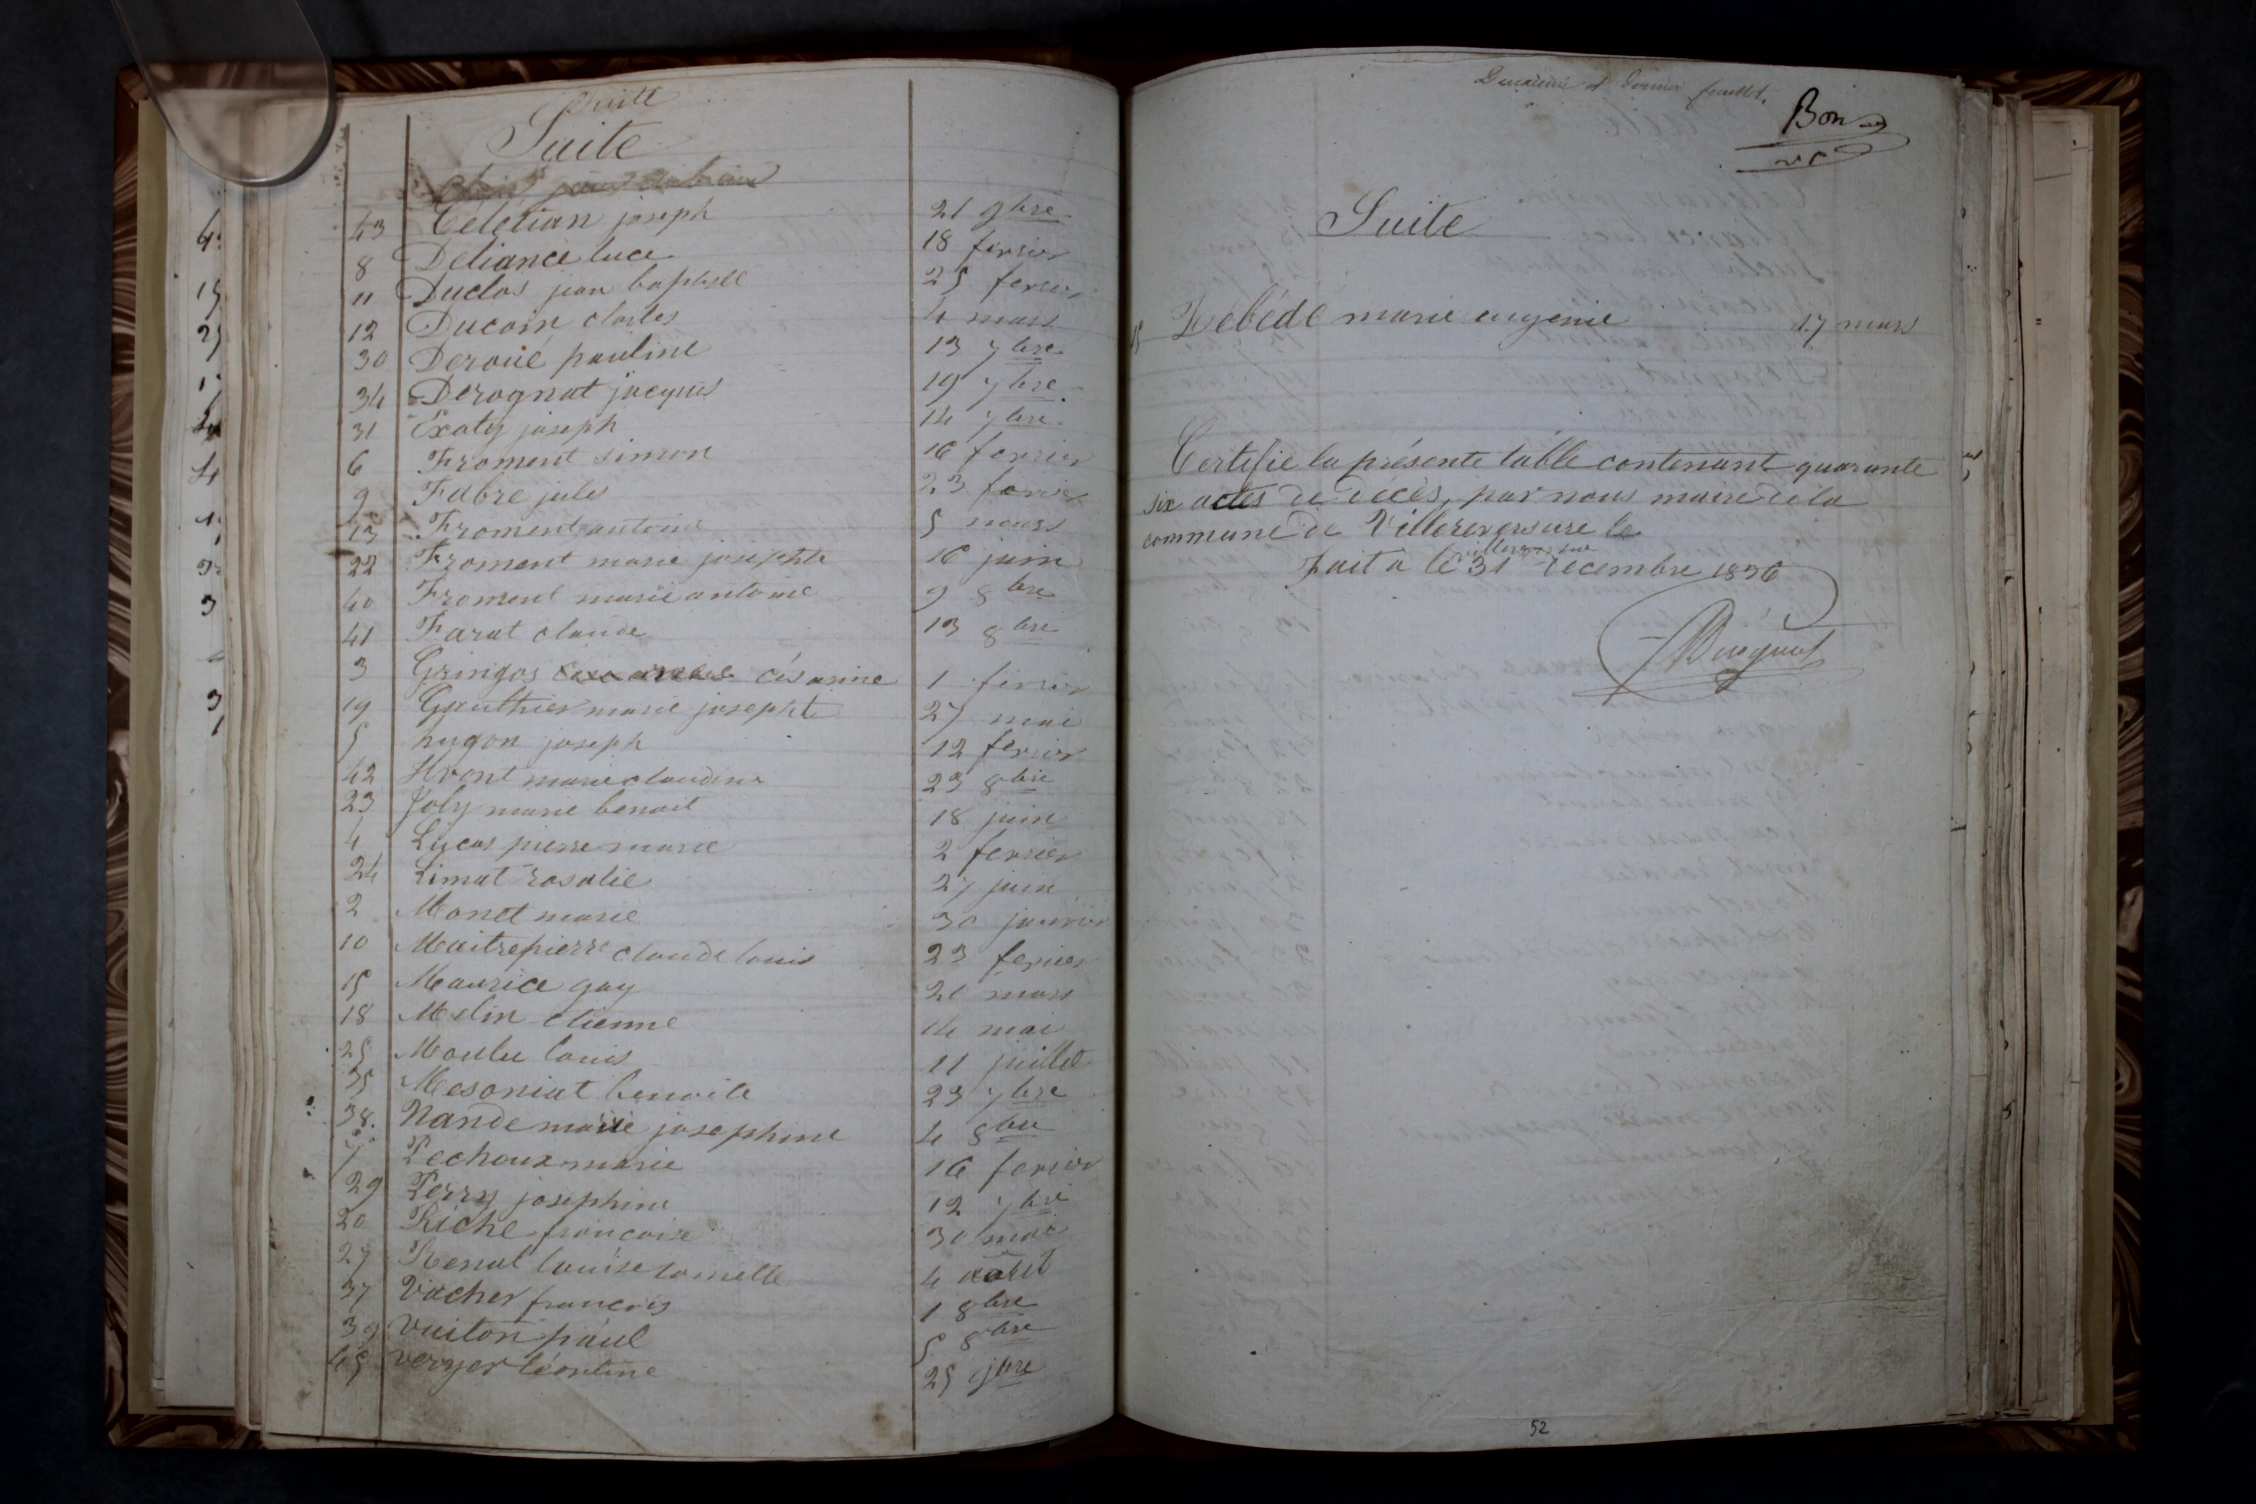 Suite
Suite
43 Célétian joseph 21 9bre
8 Déliance luce 18 fevrier
11 Duclos jean baptiste 25 fevrier
12 Ducoin charles 4 mars
30 Deroué pauline 13 7bre
34 Derognat jacques 19 7bre
31 Exaty joseph 14 7bre
6 Froment simon 16 fevrier
9 Fabre jules 23 fevrier
13 Froment antoine 5 mars
22 Froment marie josephte 16 juin
40 Froment marie antoine 9 8bre
41 Farat claude 13 8bre
3 Gringos césarine 1 fevrier
19 Gauthier marie josephte 27 mai
5 hugon joseph 12 fevrier
42 marie claudine 23 8bre
23 Joly marie benoit 18 juin
4 Lucas pierre marie 2 fevrier
24 Limat rosalie 27 juin
2 Monet marie 30 janvier
10 Maitrepierre claude louis 23 fevrier
15 Maurice gay 20 mars
18 Melin etienne 14 mai
25 Moulu louis 11 juillet
35 Mesoniat benoite 23 7bre
38. Nande marie josephine 4 8bre
7 Pechoux marie 16 fevrier
29 Perry josephine 12 7bre
20 Riche francoise 30 mai
27 Renal louise 4 aout
37 Vacher francois 1 8bre
39 Vuiton paul 5 8bre
45 verger léontine 25 9bre
Deuxième et dernier feuillet.
Bon
Suite
Débédé marie eugenie 17 mars
Certifie la présente table contenant quarante
six actes de décès, par nous maire de la
commune de Villereversure le
villereversure
Fait a le 31 decembre 1836
52